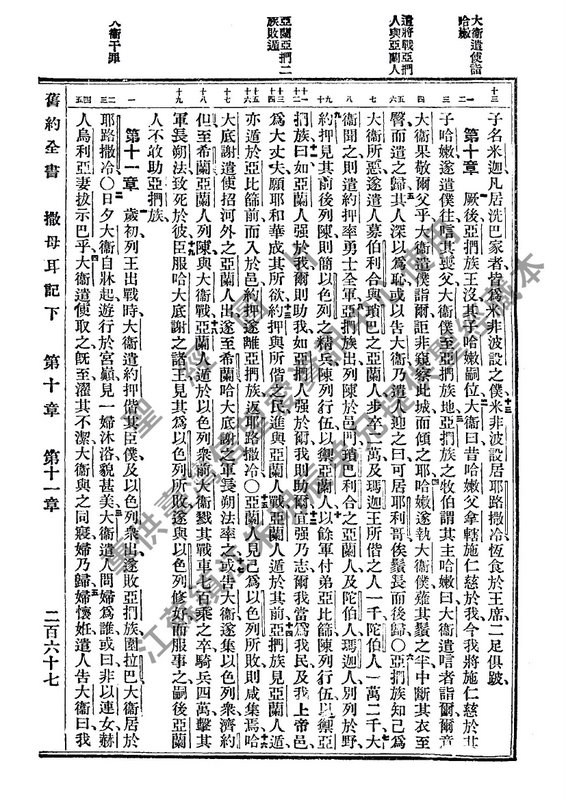 大衛遣使誥
哈嫩
遣將戰亞捫
人與亞蘭人
亞蘭亞捫二
族敗遁
大衛干罪
十三 子名米迦凡居洗巴家者皆爲米非波設之僕米非波設居耶路撒冷恆食於王席二足俱跛
第十章 厥後亞捫族王沒其子哈嫩嗣位大衛曰昔哈嫩父拿轄施仁慈於我今我將施仁慈於其
子哈嫩遂遣僕往唁其喪父大衛僕至亞捫族地亞捫族之牧伯謂其主哈嫩曰大衛遣唁者詣爾爾意
大衛果敬爾父乎大衛遣僕詣爾詎非窺察此城而傾之耶哈嫩遂執大衛僕薙其鬚之半中斷其衣至
臀而遣之歸其人深以爲恥或以告大衛乃遣人迎之曰可居耶利哥俟鬚長而後歸○亞捫族知己爲
大衛所惡遂遣人募伯利合與瑣巴之亞蘭人步卒二萬及瑪迦王所偕之人一千陀伯人一萬二千大
衛聞之則遣約押率勇士全軍亞捫族出列陳於邑門瑣巴利合之亞蘭人及陀伯人瑪迦人別列於野
約押見其前後列陳則簡以色列之精兵陳列行伍以禦亞蘭人以餘軍付弟亞比篩陳列行伍以禦亞
捫族曰如亞蘭人强於我爾則助我如亞捫人强於爾我則助爾宜强乃志爾我當爲我民及我上帝邑
爲大丈夫願耶和華成其所欲約押與所偕之民進與亞蘭人戰亞蘭人遁於其前亞捫族見亞蘭人遁
亦遁於亞比篩前而入於邑約押遂離亞捫族返耶路撒冷○亞蘭人見己爲以色列所敗則咸集焉哈
大底謝遣使招河外之亞蘭人出遂至希蘭哈大底謝之軍長朔法率之或告大衛遂集以色列衆濟約
但至希蘭亞蘭人列陳與大衛戰亞蘭人遁於以色列衆前大衛戮其戰車七百乘之卒騎兵四萬擊其
軍長朔法致死於彼臣服哈大底謝之諸王見其爲以色列所敗遂與以色列修好而服事之嗣後亞蘭
人不敢助亞捫族
第十一章 歲初列王出戰時大衛遣約押偕其臣僕及以色列衆出遂敗亞捫族圍拉巴大衛居於
耶路撒冷○日夕大衛自牀起遊行於宮巓見一婦沐浴貌甚美大衛遣人問婦爲誰或曰非以連女赫
人烏利亞妻拔示巴乎大衛遣使取之旣至濯其不潔大衛與之同寢婦乃歸婦懷姙遣人告大衛曰我
舊約全書 撒母耳記下 第十章 第十一章 二百六十七